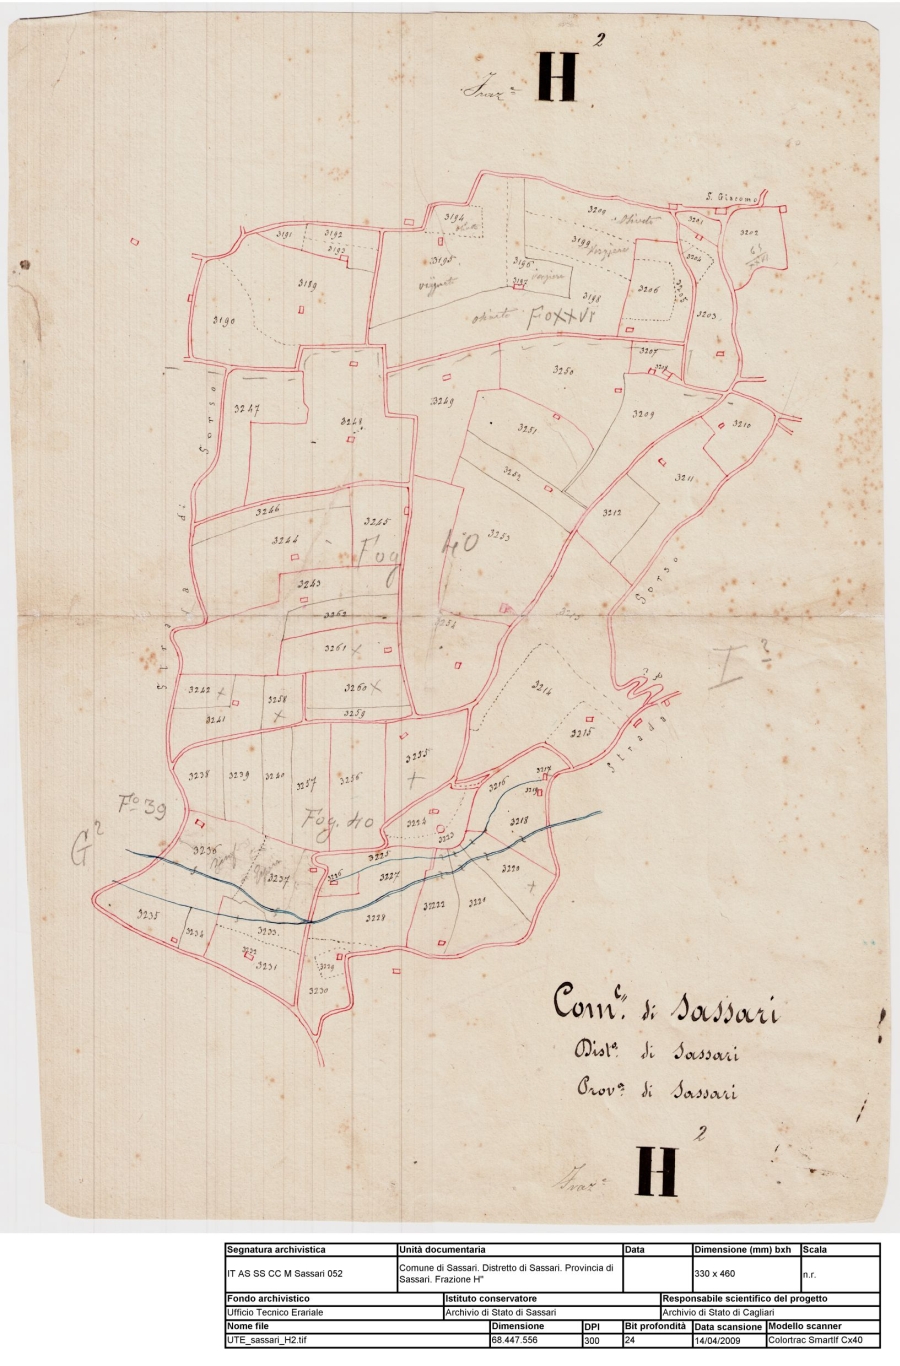 Fraz.ᵉ H ²
S. Giacomo
3191
3192
3193
3194
3195
vigneto
3196
3197
3198
3199
3200
oliveto
3201
3202
3203
3204
3205
3206
3189
3190
oliveto Fo XXVI
3207
3247
3248
3249
3250
3251
3252
3253
3209
3210
3211
3212
3246
3244
3245
Fog 40
3243
3262
3261
3260
3259
3242
3241
3258
3254
I ²
3214
3215
Strada di Sorso
Strada Sorso
3238
3239
3240
3257
3256
3255
Fº 39
Fog. 40
G ²
3224
3223
3216
3217
3218
3219
3220
3221
3222
3225
3226
3227
3228
3229
3230
3231
3232
3233
3234
3235
3236
3237
Comᵉ. di Sassari
Distᵒ. di Sassari
Provᵃ. di Sassari
Fraz.ᵉ H ²
Segnatura archivistica Unità documentaria Data Dimensione (mm) bxh Scala
IT AS SS CC M Sassari 052 Comune di Sassari. Distretto di Sassari. Provincia di Sassari. Frazione H" 330 x 460 n.r.
Fondo archivistico Istituto conservatore Responsabile scientifico del progetto
Ufficio Tecnico Erariale Archivio di Stato di Sassari Archivio di Stato di Cagliari
Nome file Dimensione DPI Bit profondità Data scansione Modello scanner
UTE_sassari_H2.tif 68.447.556 300 24 14/04/2009 Colortrac Smartlf Cx40